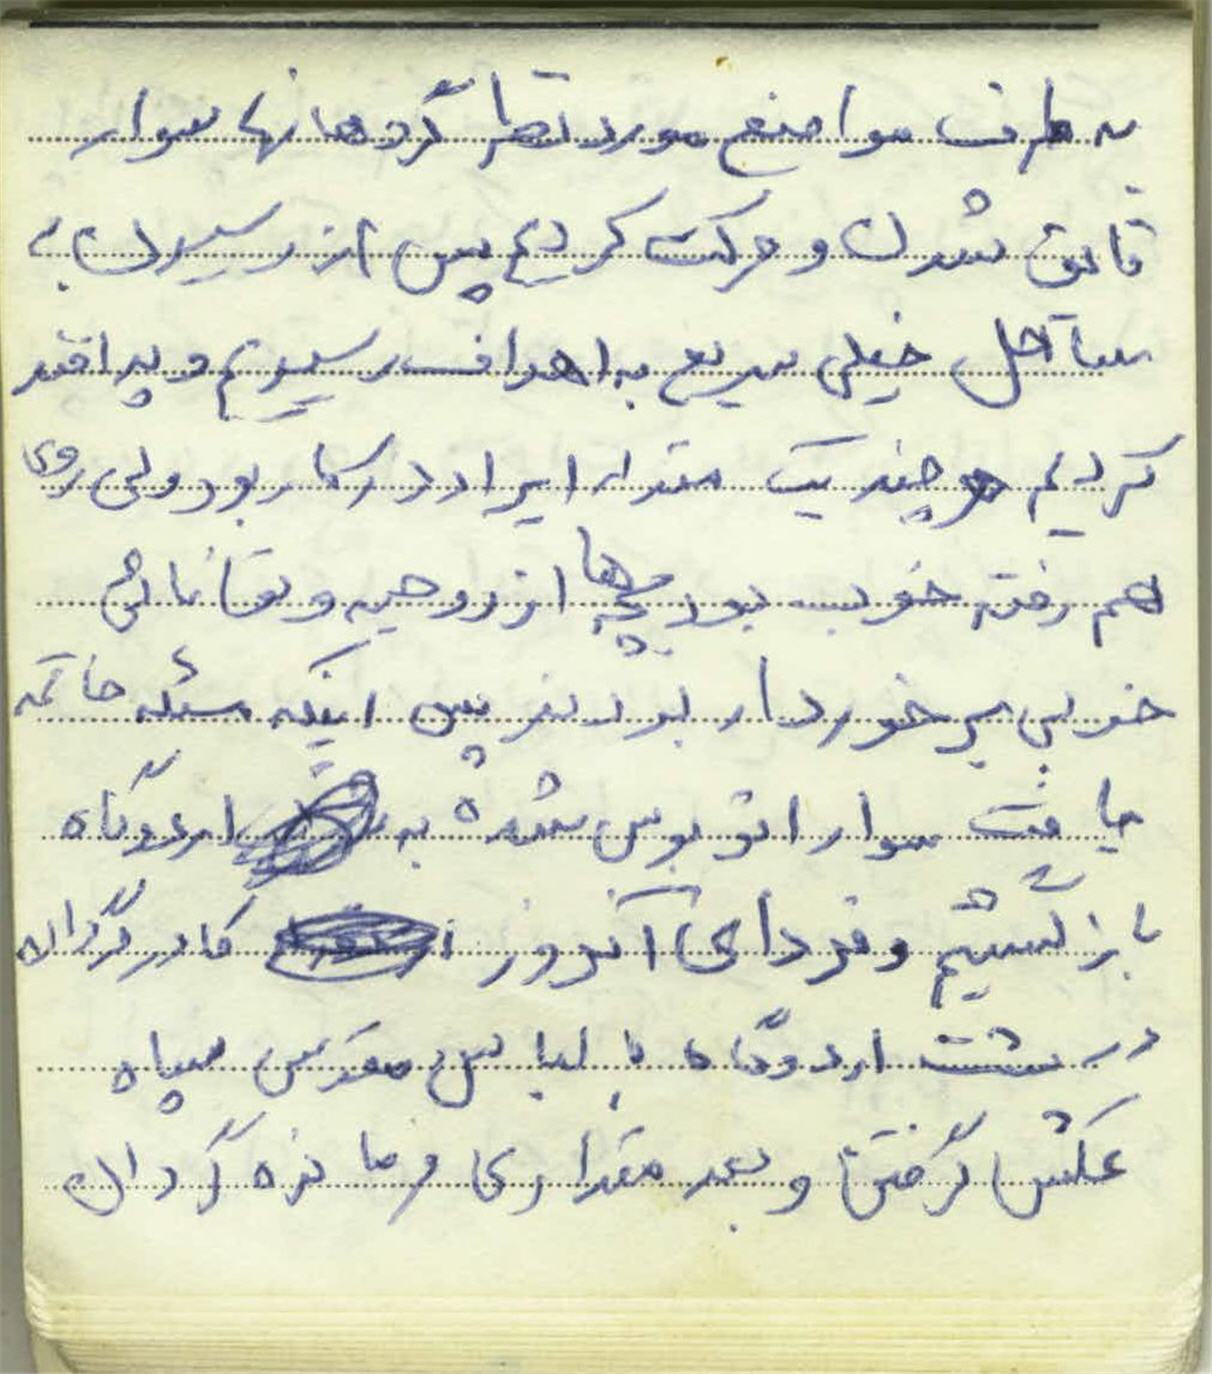 به طرف مواضع مورد نظر گردهانها سوار
قایق شدن و حرکت کردیم پس از رسیدن به
ساحل خیلی سریع به اهداف رسیدیم و پدافند
کردیم هر چند یک مقدار ایراد در کار بود ولی روی
هم رفته خوب بود بچه‌ها از روحیه و توانائی
خوبی برخوردار بودند پس اینکه مسئله خاتمه
یافت سوار اتوبوس شده به اردوگاه
بازگشتیم و فردای آنروز کادر گردان
در پشت اردوگاه با لباس مقدس سپاه
عکس گرفتن و بعد مقداری فرمانده گردان